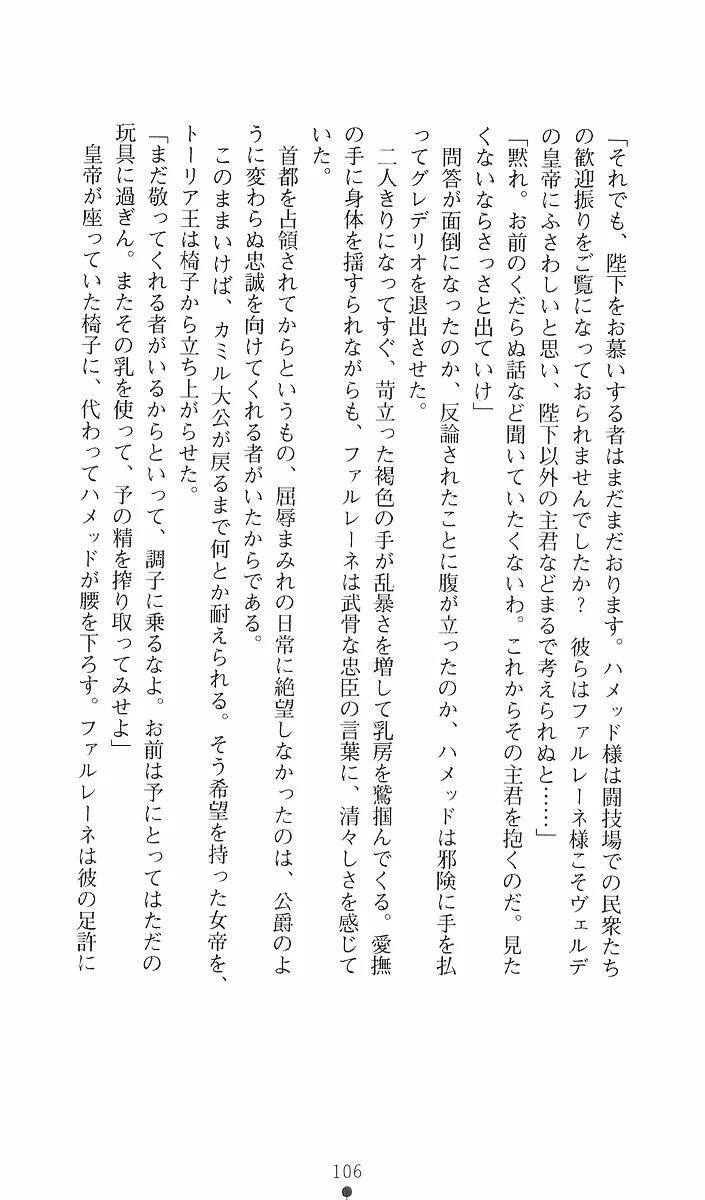 「それでも、陛下をお慕いする者はまだまだおります。ハメッド様は闘技場での民衆たち
の歓迎振りをご覧になっておられませんでしたか？　彼らはファルレーネ様こそヴェルデ
の皇帝にふさわしいと思い、陛下以外の主君などまるで考えられぬと……」
「黙れ。お前のくだらぬ話など聞いていたくないわ。これからその主君を抱くのだ。見た
くないならさっさと出ていけ」
　問答が面倒になったのか、反論されたことに腹が立ったのか、ハメッドは邪険に手を払
ってグレデリオを退出させた。
　二人きりになってすぐ、苛立った褐色の手が乱暴さを増して乳房を鷲掴んでくる。愛撫
の手に身体を揺すられながらも、ファルレーネは武骨な忠臣の言葉に、清々しさを感じて
いた。
　首都を占領されてからというもの、屈辱まみれの日常に絶望しなかったのは、公爵のよ
うに変わらぬ忠誠を向けてくれる者がいたからである。
　このままいけば、カミル大公が戻るまで何とか耐えられる。そう希望を持った女帝を、
トーリア王は椅子から立ち上がらせた。
「まだ敬ってくれる者がいるからといって、調子に乗るなよ。お前は予にとってはただの
玩具に過ぎん。またその乳を使って、予の精を搾り取ってみせよ」
　皇帝が座っていた椅子に、代わってハメッドが腰を下ろす。ファルレーネは彼の足許に
106